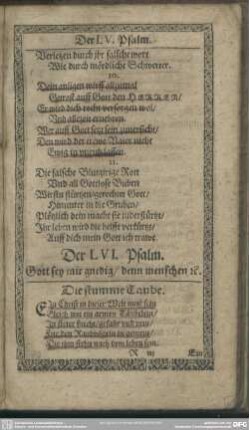 Der LV. Psalm.
Verletzen durch jhr falsche wort
Wie durch mördliche Schwerter.
10.
Dein anligen werff allzumal
Getrost auff Gott den HERREN/
Er wird dich wohl versorgen
Und allezeit ernehren
Wer auff Gott setzt sein zuversicht/
Den wird der trewe Vater nicht
Ewig
11.
Die falsche Blutgirige Rott
Vnd all Gottlose Buben
Wirstu stürtzen gerechter Gott/
Hinunter in die Gruben/
Plötzlich dein macht sie niderstürtzt/
Jhr leben wird die helfft verkürtzt/
Auff dich mein Gott ich trawe.
Der LVI. Psalm.
Gott sey mir gnedig/ denn menschen ꝛc.
Die stumme Taube.
Ein Christ in dieser Welt muß sich
Gleich wie ein armes Täublein/
In steter furcht/ gefahr vnd
den Raubvögeln